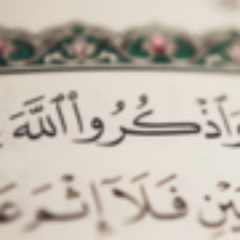 وَٱذْكُرُوا۟ ٱللَّهَ
فَلَآ إِثْمَ